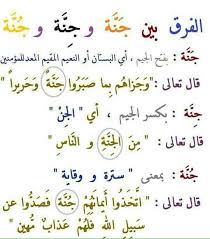 الفرق بين جَنَّة وجِنَّة و جُنَّة
جَنَّة : بفتح الجيم ، أي البستان أو النعيم المقيم المعد للمؤمنين
قال تعالى : " وَجَزَاهُم بِمَا صَبَرُوا جَنَّةً وَحَرِيراً "
جِنَّة : بكسر الجيم ، أي " الجن "
قال تعالى : " مِنَ الْجِنَّةِ و النَّاسِ "
جُنَّة : بمعنى " سترة و وقاية "
قال تعالى : " اتَّخَذُوا أَيْمَانَهُمْ جُنَّةً فَصَدُّوا عَن
سَبِيلِ اللَّهِ فَلَهُمْ عَذَابٌ مُّهِينٌ "